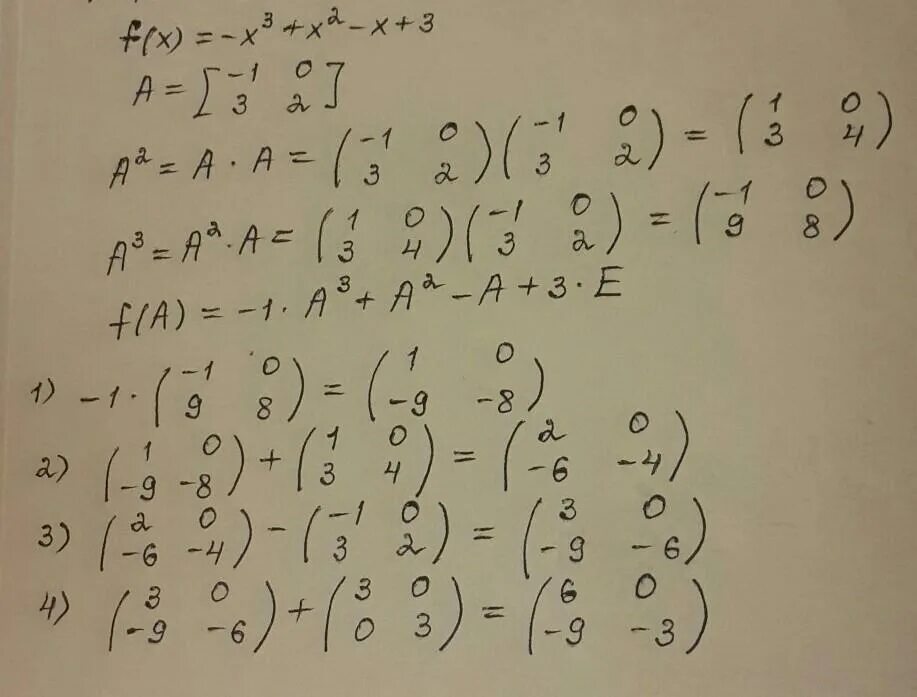 f(x) = -x³ + x² - x + 3
A = [-1 0; 3 2]
A² = A · A = (-1 0; 3 2)(-1 0; 3 2) = (1 0; 3 4)
A³ = A² · A = (1 0; 3 4)(-1 0; 3 2) = (-1 0; 9 8)
f(A) = -1 · A³ + A² - A + 3 · E
1) -1 · (-1 0; 9 8) = (1 0; -9 -8)
2) (1 0; -9 -8) + (1 0; 3 4) = (2 0; -6 -4)
3) (2 0; -6 -4) - (-1 0; 3 2) = (3 0; -9 -6)
4) (3 0; -9 -6) + (3 0; 0 3) = (6 0; -9 -3)